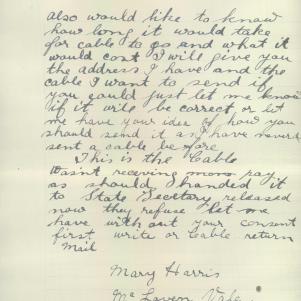 also would like to know
how long it would take
for cable to go and what it
would cost I will give you
the address I have and the
cable I want to send if
you could just let me know
if it will be correct or let
me have your idea of how you
should send it as I have never
sent a cable before
This is the Cable
Wasn't receving mono
as should handed it
to State Secetary released
now they refuse let me
have with out your consent
first write or Cable return
mail
Mary Harris
Mc Laren Vale